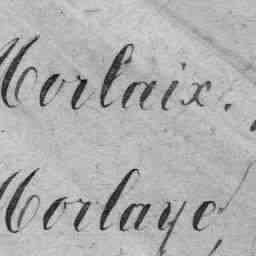 Morlaix.
Morlaye